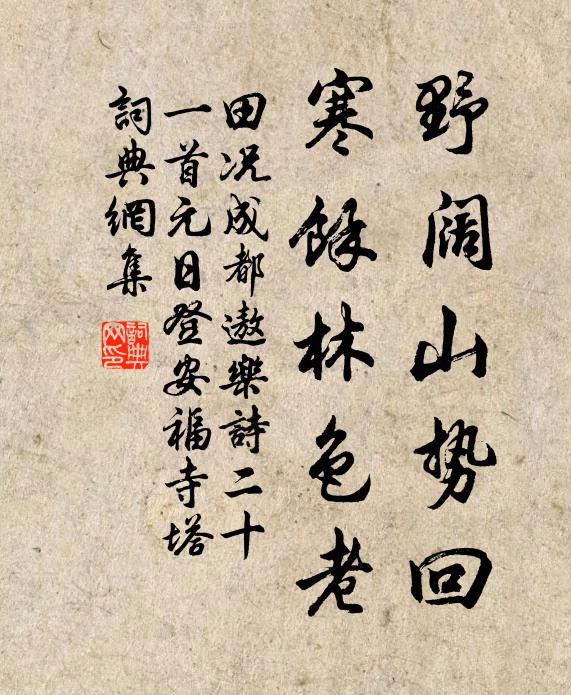 野阔山势回
寒餘林色老
田况成都遨樂詩二十
一首元日登安福寺塔
詞典網集
詞典网印